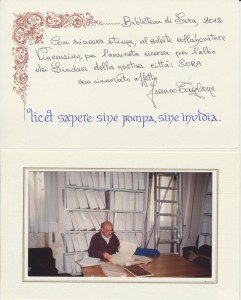 Biblioteca di Sora, 2018
Con sincera stima, al solerte collaboratore
Vincenzino, per l'accurata ricerca per l'albo
dei Sindaci della nostra città: SORA
con rinnovato affetto
licet sapere sine pompa, sine invidia.